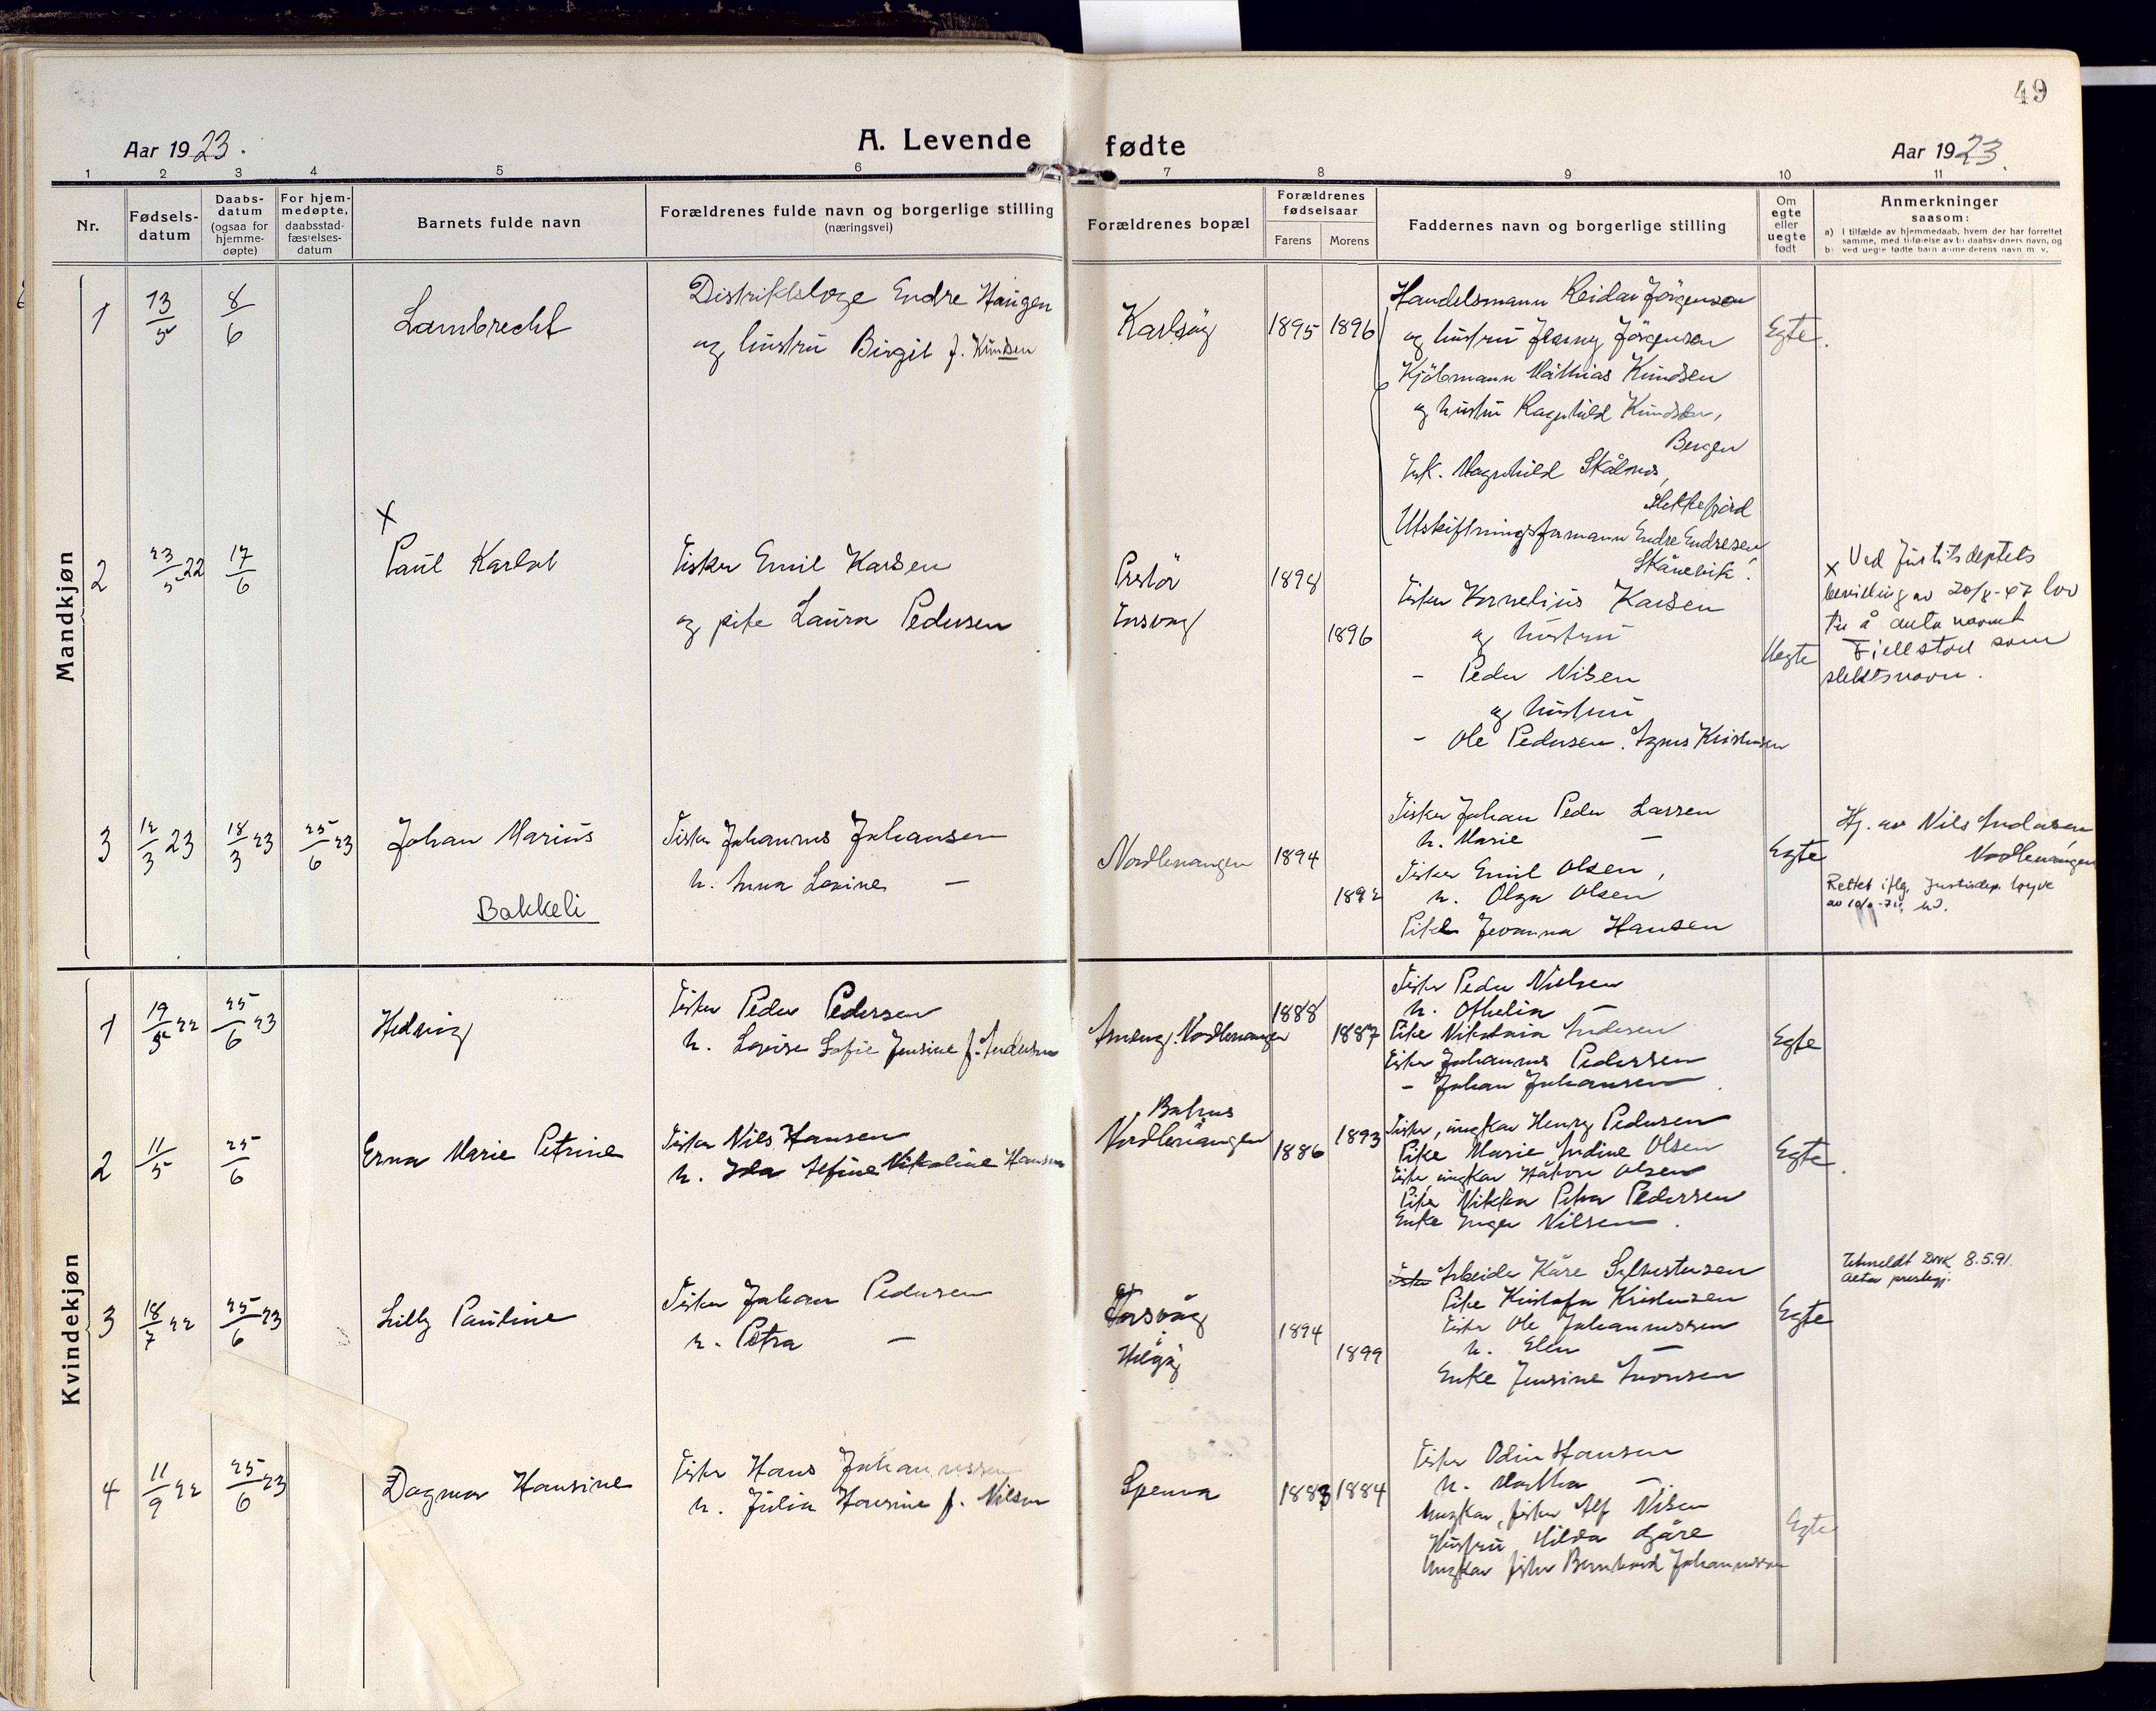 49
Aar 1923.
A. Levende fødte
Aar 1923.
1 2 3 4 5 6 7 8 9 10 11
Nr.
Fødsels-
datum
Daabs-
datum
(ogsaa for
hjemme-
døpte)
For hjem-
medøpte,
daabsstad-
fæstelses-
datum
Barnets fulde navn
Forældrenes fulde navn og borgerlige stilling
(næringsvei)
Forældrenes bopæl
Forældrenes
fødselsaar
Farens Morens
Faddernes navn og borgerlige stilling
Om
egte
eller
uegte
født
Anmerkninger
saasom:
a) i tilfælde av hjemmedaab, hvem der har forrettet
samme, med tilføielse av to daabsvidners navn, og
b) ved uegte fødte barn anmelderens navn m. v.
Mandkjøn
1 13/5 8/6 Lambrecht
Distriktslæge Endre Haugen
og hustru Birgit f. Knudsen
1895 1896
Handelsmann Reidar Jörgensen
og hustru Jörgensen
Kjöbmann Mathias Knudsen
og hustru Ragnhild Knudsen,
Bergen
Frk. Magnhild
Flekkefjord
Utskiftningsformann Endre Endresen
Skånevik.
Egte.
2 23/5 22 17/6
x
Paul Karlot
Fisker Emil Karlsen
og pike Laura Pedersen
1898
1896
Fisker Kornelius Karlsen
og hustru
- Peder Nilsen
og hustru
- Ole Pedersen. Agnes Kristensen
Uegte
x Ved Justitsdeptets
bevilling av 20/8-47 lov
til å anta navnet
Fjellstad som
slektsnavn.
3 12/3 23 18/3 23 25/6 23 Johan Marius
Bakkeli
Fisker Johannes Johansen
h. Anna Lovine —
Nordlenangen 1894
1892
Fisker Johan Peder Larsen
h. Marie —
Fisker Emil Olsen,
h. Olga Olsen
Pike Jovanna Hansen
Egte
Hj. av Nils Andersen,
Nordlenangen
Rettet iflg. Justisdep. løyve
Kvindekjøn
1 19/5 22 25/6 23 Hedvig
Fisker Peder Pedersen
h. Lovise Sofie Jensine f. Andersen
Nordlenangen 1888
1887
Fisker Peder Nielsen
h. Othelia —
Pike Andersen
Fisker Johannes Pedersen
- Johan Johansen
Egte
2 11/5 25/6 Erna Marie Petrine
Fisker Nils Hansen
h. Ida Alfine Nikoline Hansen
Nordlenangen 1886 1893
Fisker, ungkar Henry Pedersen
Pike Marie Andine Olsen
Fisker, ungkar Håkon Olsen
Pike Nikka Petra Pedersen
Enke Inger Nilsen.
Egte.
3 18/7 22 25/6 23 Lilly Pauline
Fisker Johan Pedersen
h. Petra —
Torsvåg
Helgöj
1894
1899
Fisker Arbeider Kåre Sylvestersen
Pike Kristofa Kristensen
Fisker Ole Johannessen
h. Elen —
Enke Jensine
Egte
Utmeldt DNK 8.5.91.
Alta prestegj.
4 11/9 22 25/6 23 Dagmar Hansine
Fisker Hans Johannessen
h. Julia Hansine f. Nilsen
Spenna 1883 1884
Fisker Odin Hansen
h. Martha —.
Ungkar, fisker Alf Nilsen
Hustru Hilda
Ungkar fisker Bernhard Johannessen
Egte